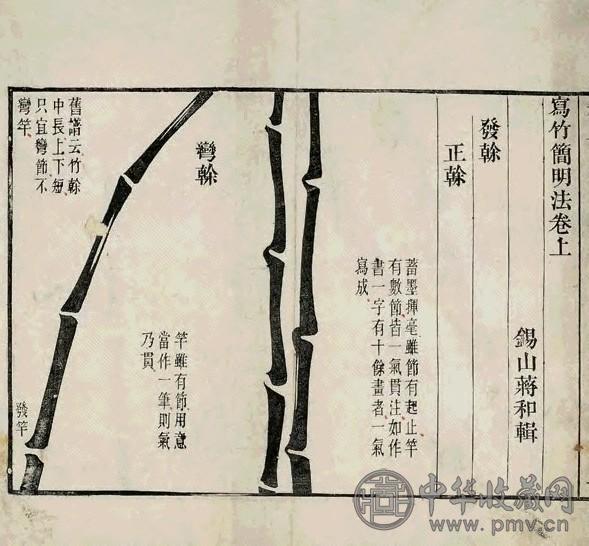 寫竹簡明法卷上
錫山蔣和輯
發榦
正榦
蓄墨揮毫雖節有起止竿
有數節皆一氣貫注如作
書一字有十餘畫者一氣
寫成
彎榦
竿雖有節用意
當作一筆則氣
乃貫
舊譜云竹榦
中長上下短
只宜彎節不
彎竿
發竿
中华收藏网
www.pmv.cn